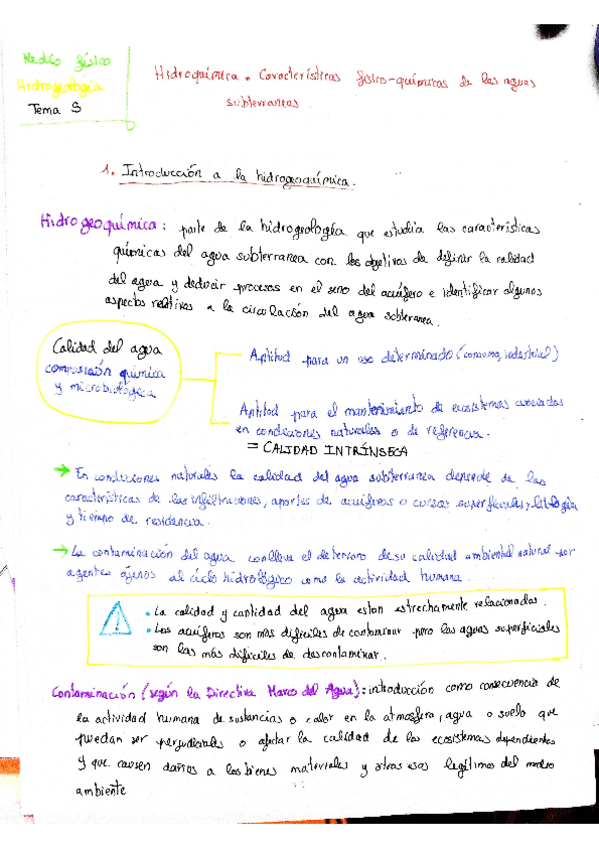 Medio físico
Hidrogeología
Tema 5
Hidroquímica. Características físico-químicas de las aguas
subterraneas.
1. Introducción a la hidrogeoquímica.
Hidrogeoquímica: parte de la hidrogeología que estudia las características
químicas del agua subterranea con los objetivos de definir la calidad
del agua y deducir procesos en el seno del acuífero e identificar algunos
aspectos relativos a la circulación del agua subteranea.
Calidad del agua
composición química
y microbiológica
Aptitud para un uso determinado (consumo, industrial)
Aptitud para el mantenimiento de ecosistemas asociados
en condiciones naturales o de referencia.
= CALIDAD INTRÍNSECA
→ En condiciones naturales la calidad del agua subterranea depende de las
características de las infiltraciones, aportes de acuíferos o cursos superficiales, litología
y tiempo de residencia.
→ La contaminación del agua conlleva el deterioro de su calidad ambiental natural por
agentes ajenos al ciclo hidrológico como la actividad humana.
• La calidad y cantidad del agua estan estrechamente relacionadas.
• Los acuíferos son más difíciles de contaminar pero las aguas superficiales
son las más difíciles de descontaminar.
Contaminación (según la Directiva Marco del Agua): introducción como consecuencia de
la actividad humana de sustancias o calor en la atmosfera, agua o suelo que
puedan ser perjudiciales o afectar la calidad de los ecosistemas dependientes
y que causen daños a los bienes materiales y otros usos legítimos del medio
ambiente